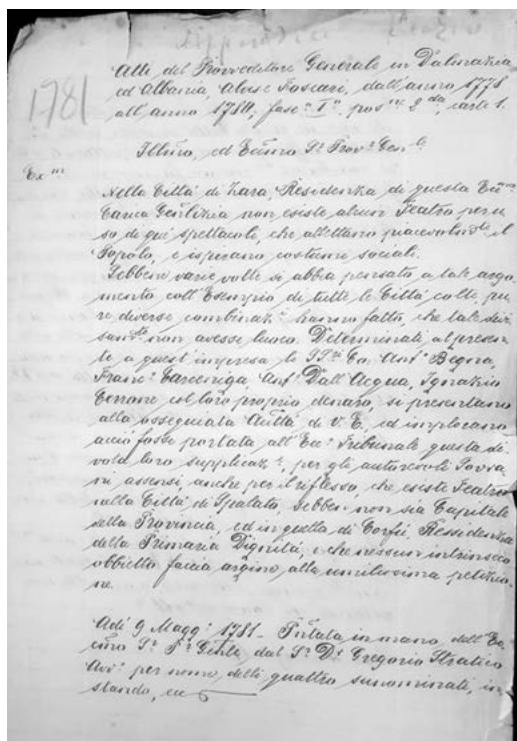 Atti del Provveditore Generale in Dalmazia
ed Albania, Alvise Foscari, dall'anno 1778
1781
all'anno 1780, fasc.º I.º, pos.ne 2.da, carte 1.
Illmo, ed Eccmo S.r Prov.r Gen.le
Ex.m
Nella Città di Zara, Residenza di questa Ecc.ma
Carica Gen͞lizia non esiste alcun Teatro per u-
so di que' spettacoli, che allettano piacevolm.te il
Popolo, e ispirano costumi sociali.
Sebben varie volte si abbia pensato a tale argo-
mento coll'Esempio di tutte le Città colte, pu-
re diverse combinaz.i hanno fatto, che tale divi-
sam.to non avesse luoco. Determinati al presen-
te a quest'impresa li Co. Ant.o Begna,
Franc.o Carceniga, Ant.o Dall'Acqua, Ignazio
Cerrone col loro proprio denaro, si presentano
alla ossequiata Auttà di V. E. ed implorano
acciò fosse portata all'Ecc.o Tribunale questa di-
vota loro supplicaz.e, per gli autorevoli Sovra-
ni assensi, anche per il riflesso, che esiste Teatro
nella Città di Spalato, sebben non sia Capitale
della Provincia, ed in quella di Corfù, Ressidenza
della Primaria Dignità, e che nessun intrinseco
obbietto faccia argino alla umilissima petizio-
ne.
Adì 9 Magg.o 1781 - P͞ntata in mano dell'Ec-
cmo S.r P.r Gen͞le dal S.r D.r Gregorio Stratico
Avv.o per nome delli quattro sunominati, in-
stando, ecc